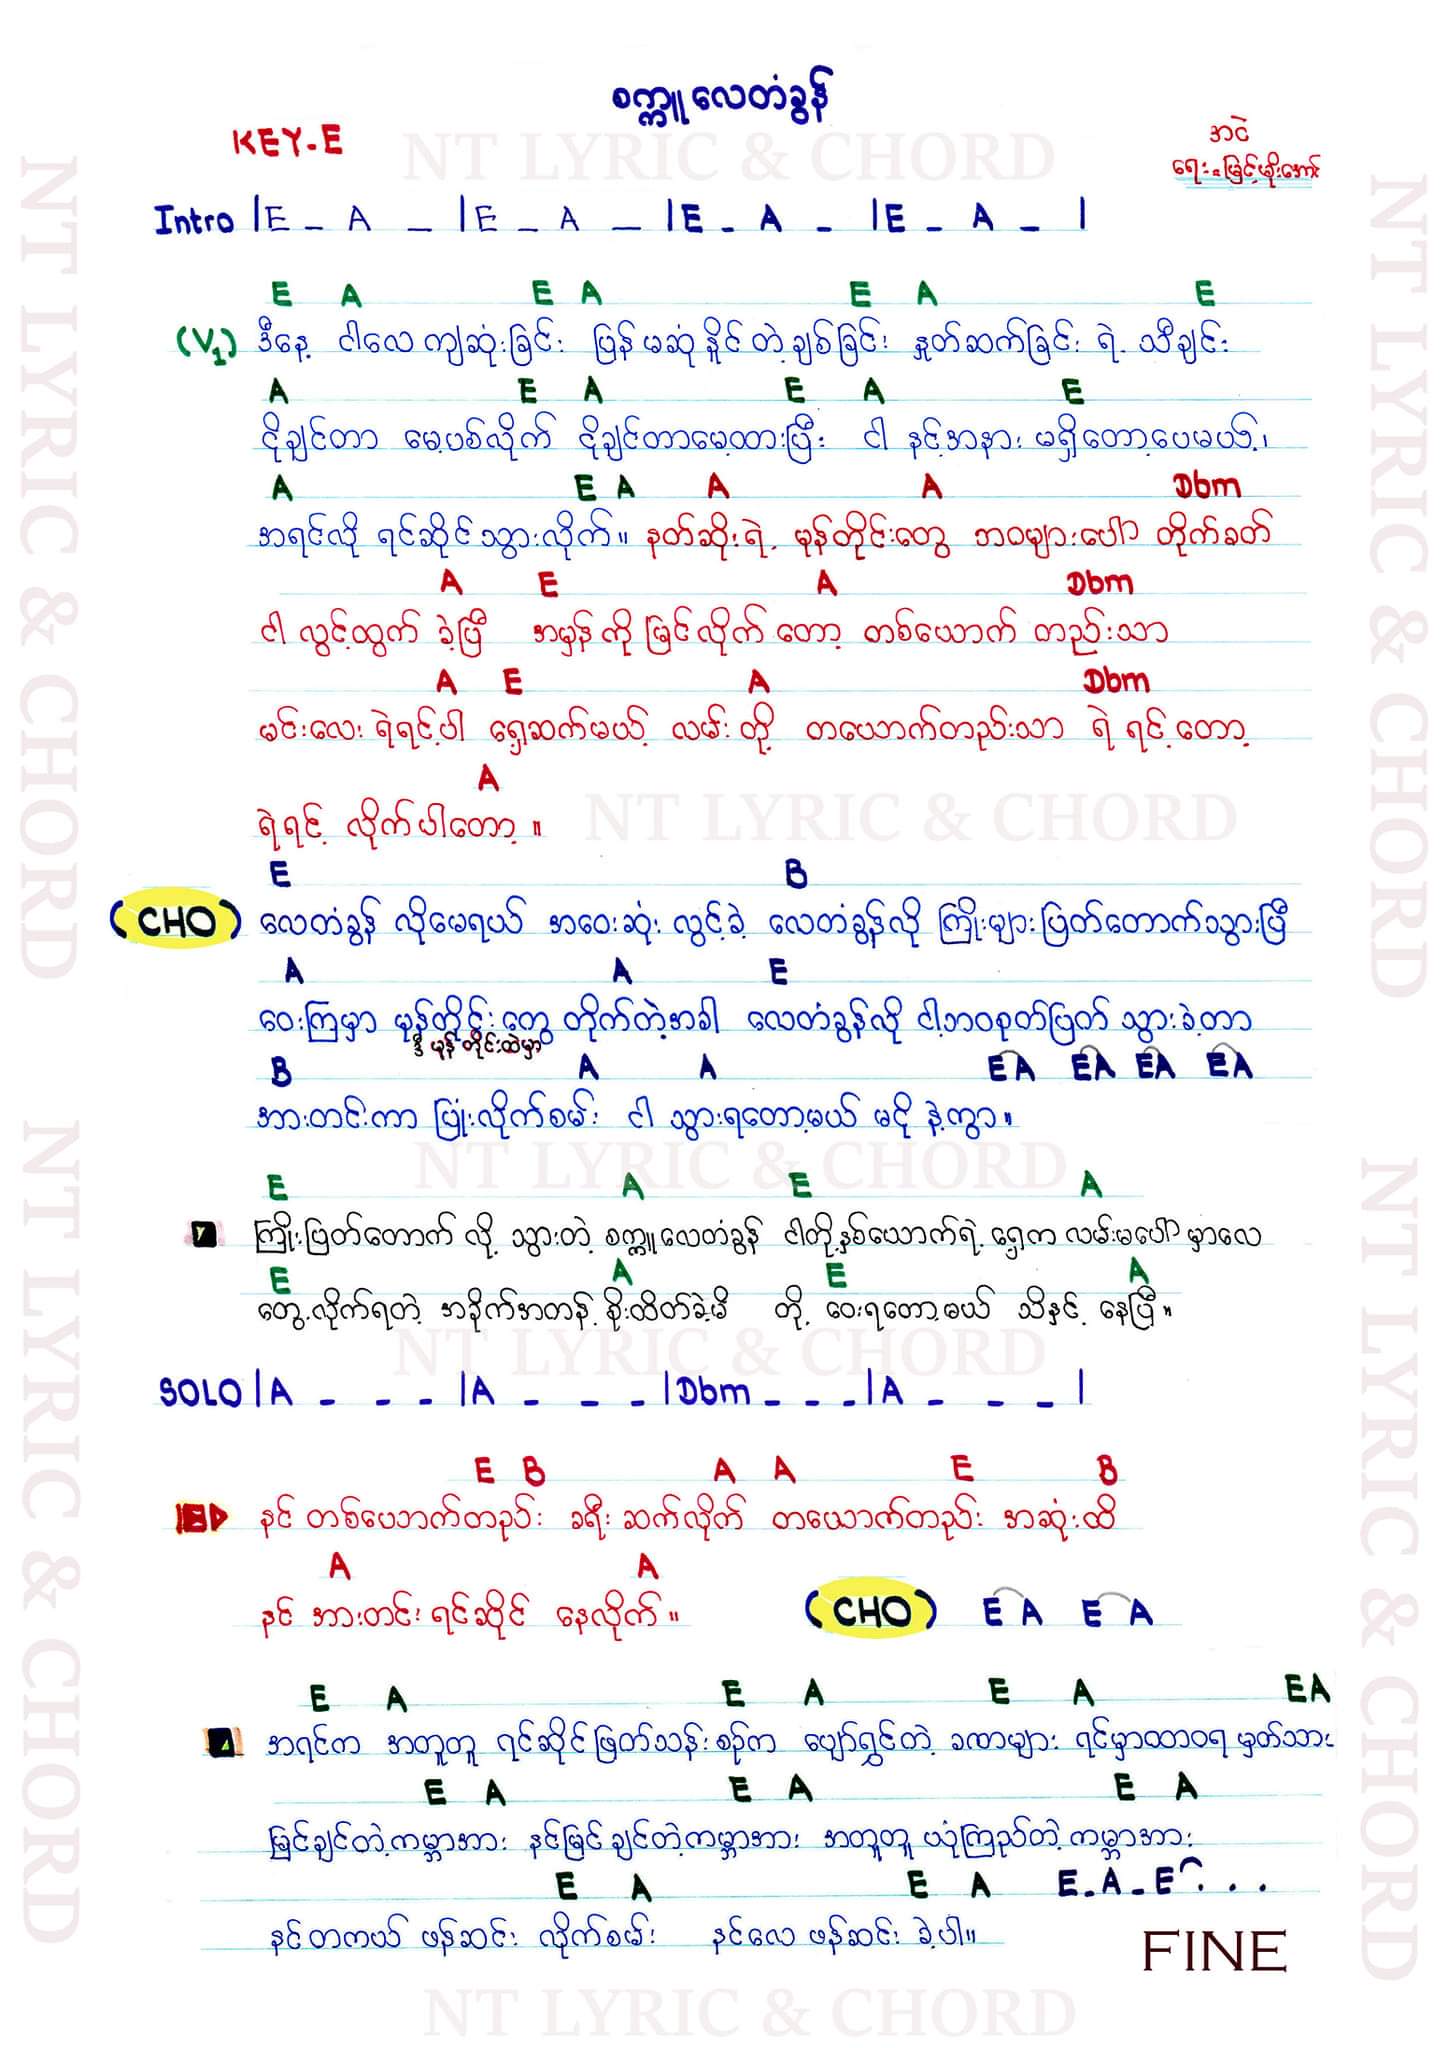 စက္ကူလေတံခွန်
KEY-E
NT LYRIC & CHORD
အငဲ
ရေး-မြင့်မိုးအောင်
Intro |E – A – |E – A – |E – A – |E – A – |
E A E A E A E
(V1) ဒီနေ့ ငါလေ ကျဆုံးခြင်း ပြန်မဆုံနိုင်တဲ့ ချစ်ခြင်း နှုတ်ဆက်ခြင်း ရဲ့ သီချင်း
A E A E A E
ငိုချင်တာ မေ့ပစ်လိုက် ငိုချင်တာမေ့ထားပြီး ငါ နင့်အနား မရှိတော့ပေမယ့်၊
A E A A A Dbm
အရင်လို ရင်ဆိုင်သွားလိုက်။ နတ်ဆိုးရဲ့ မုန်တိုင်းတွေ ဘဝများပေါ် တိုက်ခတ်
A E A Dbm
ငါ လွင့်ထွက် ခဲ့ပြီ အမှန်ကို မြင်လိုက်တော့ တစ်ယောက် တည်းသာ
A E A Dbm
မင်းလေး ရဲရင့်ပါ ရှေ့ဆက်မယ့် လမ်းတို့ တယောက်တည်းသာ ရဲရင့်တော့
A
ရဲရင့် လိုက်ပါတော့။
NT LYRIC & CHORD
E B
(CHO) လေတံခွန် လိုမေရယ် အဝေးဆုံး လွင့်ခဲ့ လေတံခွန်လို ကြိုးများပြတ်တောက်သွားပြီ
A A E
ဝေးကြမှာ မုန်တိုင်းတွေ တိုက်တဲ့အခါ လေတံခွန်လို ငါ့ဘဝစုတ်ပြတ်သွားခဲ့တာ
ဒီ မုန်တိုင်းထဲမှာ
B A A EA EA EA EA
အားတင်းကာ ပြုံးလိုက်စမ်း ငါ သွားရတော့မယ် မငိုနဲ့ကွာ။
NT LYRIC & CHORD
E A E A
၂ ကြိုးပြတ်တောက်လို့ သွားတဲ့ စက္ကူလေတံခွန် ငါတို့နှစ်ယောက်ရဲ့ ရှေ့က လမ်းမပေါ်မှာလေ
E A E A
တွေ့လိုက်ရတဲ့ အခိုက်အတန့် စိုးထိတ်ခဲ့မိ တို့ ဝေးရတော့မယ် သိနှင့် နေပြီ။
NT LYRIC & CHORD
SOLO |A – – – |A – – – |Dbm – – – |A – – – |
E B A A E B
နင် တစ်ယောက်တည်း ခရီးဆက်လိုက် တယောက်တည်း အဆုံးထိ
A A
နင် အားတင်း ရင်ဆိုင် နေလိုက်။ (CHO) EA EA
E A E A E A EA
အရင်က အတူတူ ရင်ဆိုင်ဖြတ်သန်းစဉ်က ပျော်ရွှင်တဲ့ ခဏများ ရင်မှာထာဝရ မှတ်သား
E A E A E A
မြင်ချင်တဲ့ကမ္ဘာအား နင်မြင်ချင်တဲ့ကမ္ဘာအား အတူတူ ယုံကြည်တဲ့ ကမ္ဘာအား
E A E A E-A-E...
နင်တကယ် ဖန်ဆင်း လိုက်စမ်း နင်လေ ဖန်ဆင်း ခဲ့ပါ။
FINE
NT LYRIC & CHORD
NT LYRIC & CHORD
NT LYRIC & CHORD
NT LYRIC & CHORD
NT LYRIC & CHORD